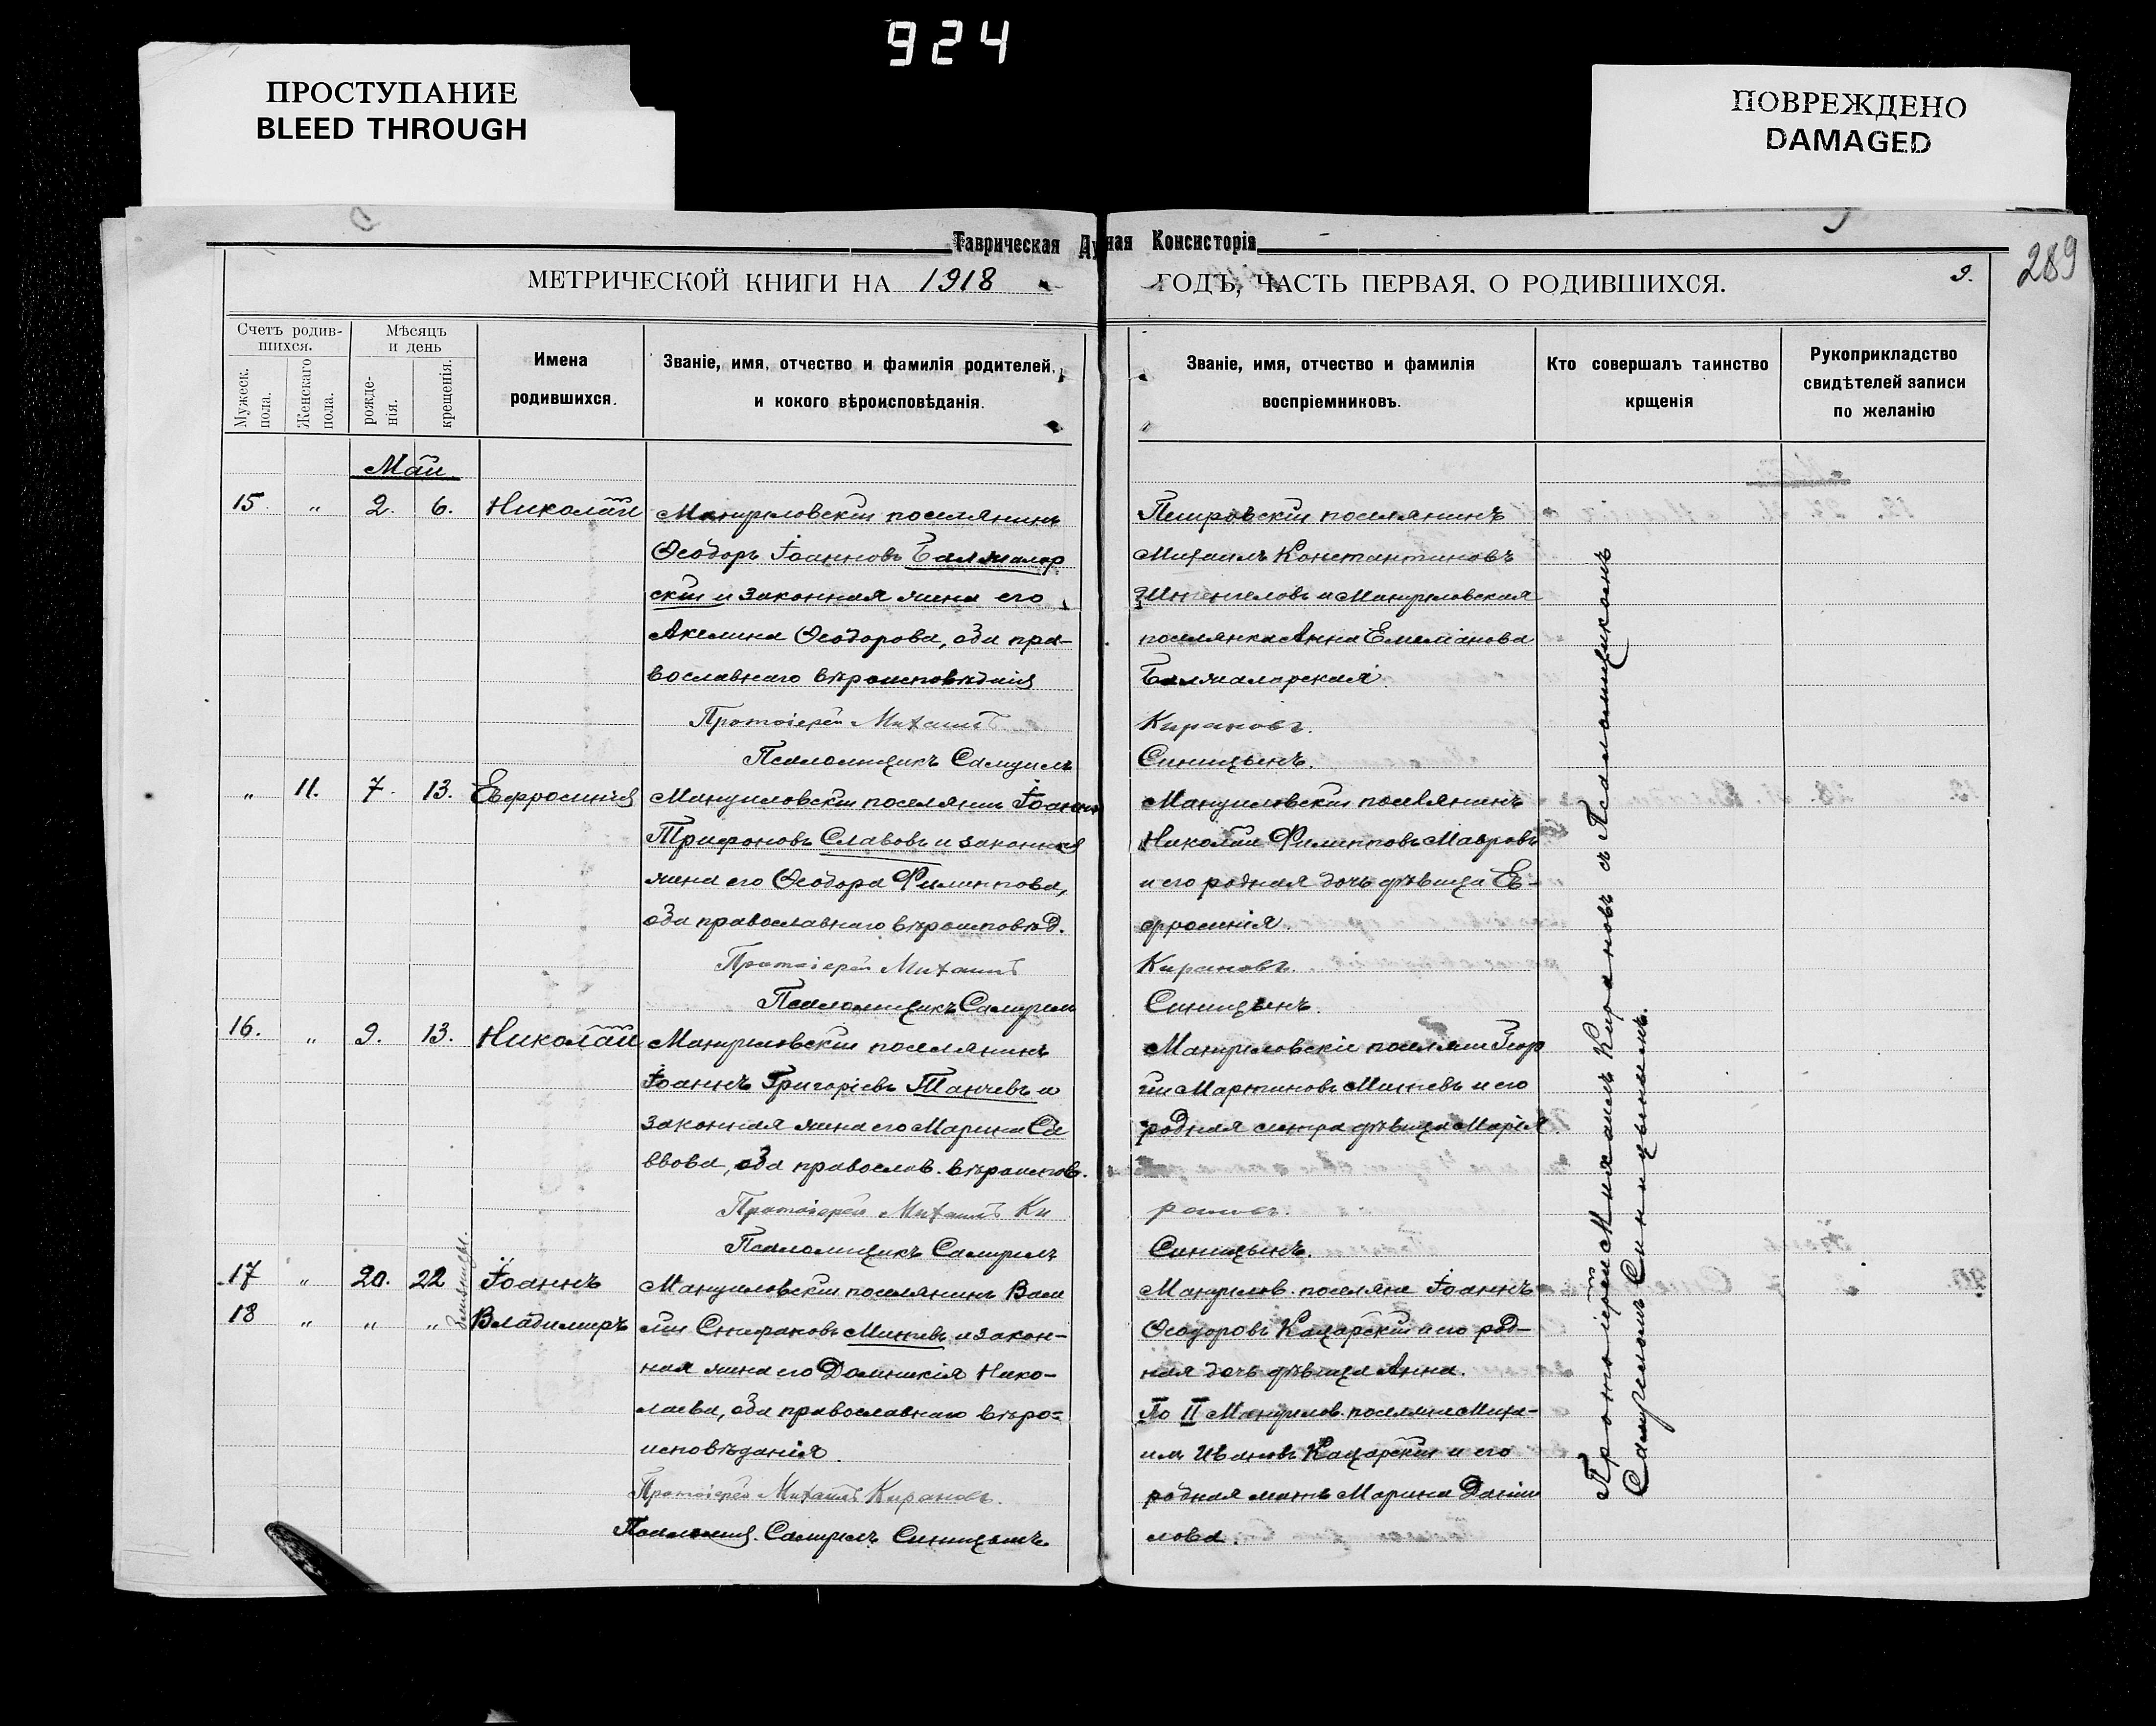 924
ПРОСТУПАНИЕ
BLEED THROUGH
ПОВРЕЖДЕНО
DAMAGED
Таврическая Ду ная Консисторія
289
МЕТРИЧЕСКОЙ КНИГИ НА 1918
ГОДЪ, ЧАСТЬ ПЕРВАЯ. О РОДИВШИХСЯ.
9.
Счетъ родив-
шихся.
Мужеск.
пола.
Женскаго
пола.
Мѣсяцъ
и день
рожде-
нія.
крещенія.
Имена
родившихся.
Званіе, имя, отчество и фамилія родителей,
и кокого вѣроисповѣданія.
Званіе, имя, отчество и фамилія
воспріемниковъ.
Кто совершалъ таинство
крщенія
Рукоприкладство
свидѣтелей записи
по желанію
Май
15. „ 2. 6. Николай
Мануиловскій поселянинъ
Ѳеодоръ Іоанновъ Балжалар
скій и законная жена его
Акелина Ѳеодорова, оба пра-
вославнаго вѣроисповѣданія
Протоіерей Михаилъ
Псаломщикъ Самуилъ
Михаилъ Константиновъ
и Мануиловская
поселянка Анна Емеліанова
Балжаларская.
Кирановъ.
Синицынъ.
„ 11. 7. 13. Евфросинія
Мануиловскій поселянин Іоаннъ
Трифоновъ Славовъ и законная
жена его Ѳеодора Филиппова,
оба православнаго вѣроисповѣд.
Протоіерей Михаилъ
Псаломщикъ Самуилъ
Мануиловскій поселянинъ
Николай Филипповъ Мавровъ
и его родная дочь дѣвица Ев-
фросинія.
Кирановъ.
Синицынъ.
16. „ 9. 13. Николай
Мануиловскій поселянинъ
Іоаннъ Григоріевъ Танчевъ и
законная жена его Марина Са
ввова, оба православ. вѣроисповѣ.
Протоіерей Михаилъ Ки
Псаломщикъ Самуилъ
Мануиловскіе поселяне Геор
гій Мартиновъ Минчевъ и его
родная сестра дѣвица Марія.
рановъ.
Синицынъ.
17 „ 20. 22 Іоаннъ
18 „ „ „ близнецы. Владимиръ
Мануиловскій поселянинъ Васи
лій Стефановъ Минчевъ и закон-
ная жена его Домникія Нико-
лаева, оба православнаго вѣро-
исповѣданія.
Протоіерей Михаилъ Кирановъ.
Псаломщ. Самуилъ Синицынъ
Мануилов. поселяне Іоаннъ
Ѳеодоровъ Кацарскій и его род-
ная дочь дѣвица Анна.
По II Мануилов. поселяне Миха-
илъ Ивановъ Кацарскій и его
родная мать Марина Даніи
лова.
Протоіерей Михаилъ Кирановъ съ Псаломщикомъ
Самуиломъ Синицынымъ.